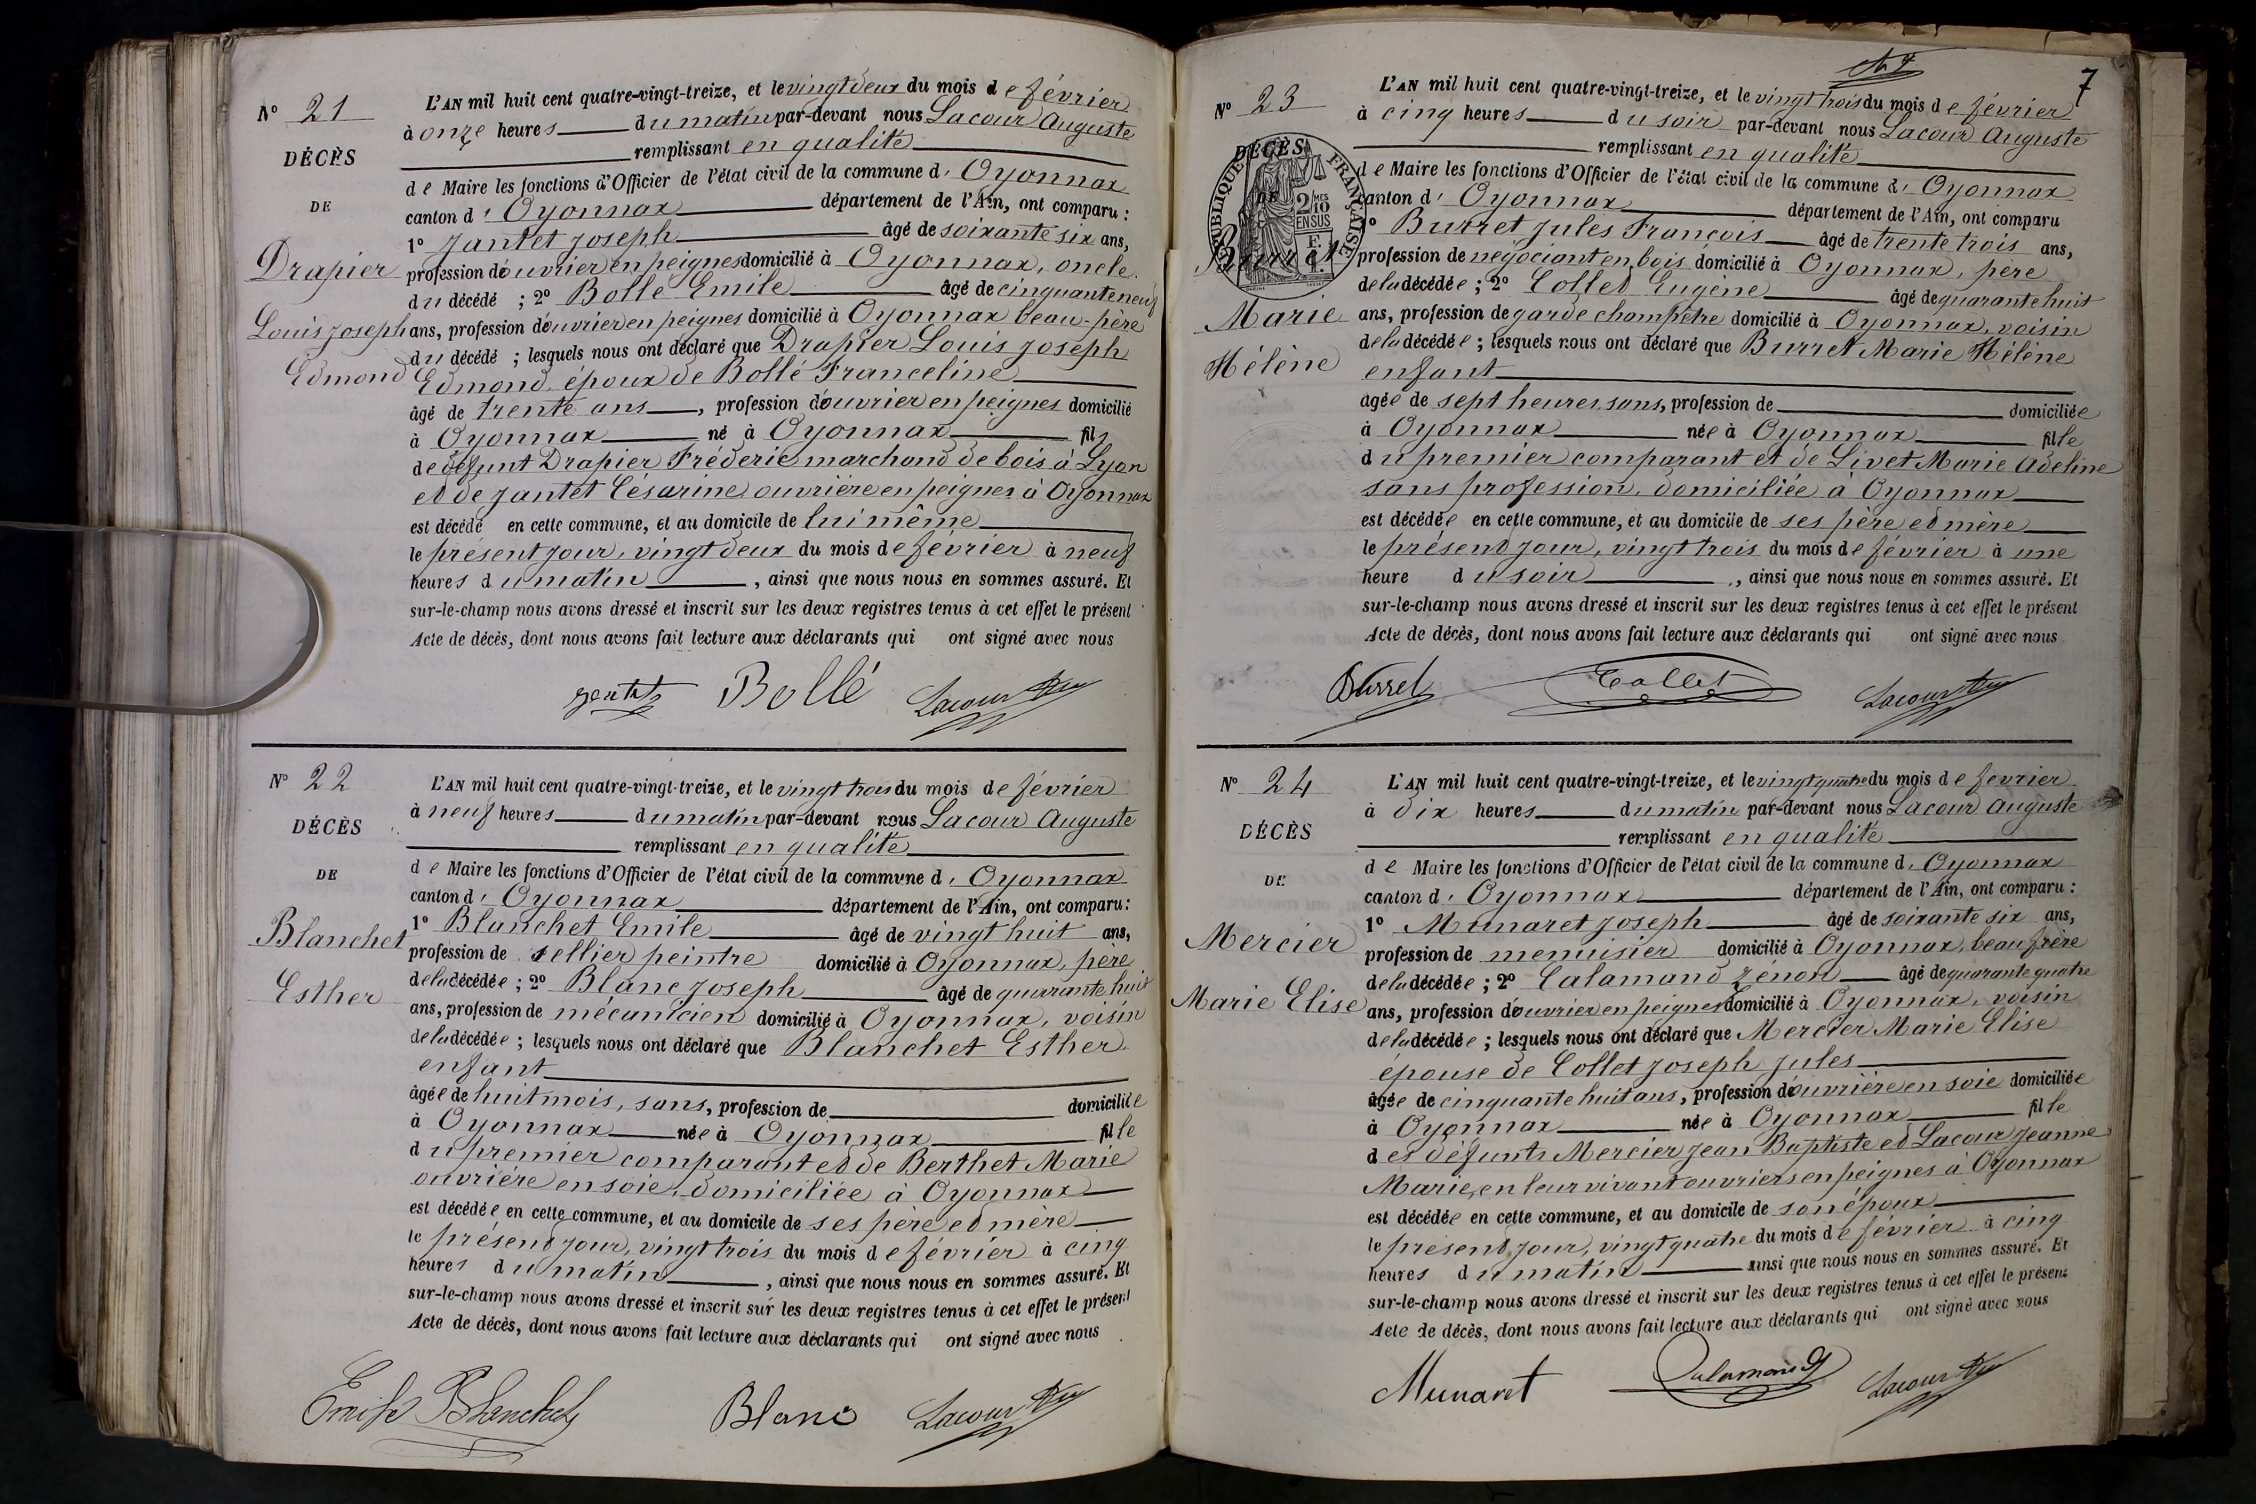 N° 21
DÉCÈS
DE
Drapier
Louis Joseph
Edmond
L'AN mil huit cent quatre-vingt-treize, et le vingt deux du mois de février
à onze heures du matin par-devant nous Lacour Auguste
remplissant en qualité
de Maire les fonctions d'Officier de l'état civil de la commune d'Oyonnax
canton d'Oyonnax département de l'Ain, ont comparu :
1° Jantet Joseph âgé de soixante six ans,
profession d'ouvrier en peignes domicilié à Oyonnax, oncle
du décédé ; 2° Bollé Emile âgé de cinquante neuf
ans, profession d'ouvrier en peignes domicilié à Oyonnax beau-père
du décédé ; lesquels nous ont déclaré que Drapier Louis Joseph
Edmond, époux de Bollé Franceline
âgé de trente ans, profession d'ouvrier en peignes domicilié
à Oyonnax né à Oyonnax fils
de défunt Drapier Fréderic marchand de bois à Lyon
et de Jantet Césarine ouvrière en peignes à Oyonnax
est décédé en cette commune, et au domicile de lui même
le présent jour, vingt deux du mois de février à neuf
heures du matin, ainsi que nous nous en sommes assuré. Et
sur-le-champ nous avons dressé et inscrit sur les deux registres tenus à cet effet le présent
Acte de décès, dont nous avons fait lecture aux déclarants qui ont signé avec nous
Bollé Lacour
N° 22
DÉCÈS
DE
Blanchet
Esther
L'AN mil huit cent quatre-vingt-treize, et le vingt trois du mois de février
à neuf heures du matin par-devant nous Lacour Auguste
remplissant en qualité
de Maire les fonctions d'Officier de l'état civil de la commune d'Oyonnax
canton d'Oyonnax département de l'Ain, ont comparu :
1° Blanchet Emile âgé de vingt huit ans,
profession de sellier peintre domicilié à Oyonnax, père
de la décédée ; 2° Blanc Joseph âgé de quarante huit
ans, profession de mécanicien domicilié à Oyonnax, voisin
de la décédée ; lesquels nous ont déclaré que Blanchet Esther
enfant
âgée de huit mois, sans, profession de domiciliée
à Oyonnax née à Oyonnax fille
du premier comparant et de Berthet Marie
ouvrière en soie, domiciliée à Oyonnax
est décédée en cette commune, et au domicile de ses père et mère
le présent jour, vingt trois du mois de février à cinq
heures du matin, ainsi que nous nous en sommes assuré. Et
sur-le-champ nous avons dressé et inscrit sur les deux registres tenus à cet effet le présent
Acte de décès, dont nous avons fait lecture aux déclarants qui ont signé avec nous
Emile Blanchet Blanc Lacour
7
N° 23
DÉCÈS
DE
RÉPUBLIQUE FRANÇAISE
2/10 MES EN SUS
Burret
Marie
Hélène
L'AN mil huit cent quatre-vingt-treize, et le vingt trois du mois de février
à cinq heures du soir par-devant nous Lacour Auguste
remplissant en qualité
de Maire les fonctions d'Officier de l'état civil de la commune d'Oyonnax
canton d'Oyonnax département de l'Ain, ont comparu
1° Burret Jules François âgé de trente trois ans,
profession de négociant en bois domicilié à Oyonnax, père
de la décédée ; 2° Collet Eugène âgé de quarante huit
ans, profession de garde champêtre domicilié à Oyonnax, voisin
de la décédée ; lesquels nous ont déclaré que Burret Marie Hélène
enfant
agée de sept heures, sans, profession de domiciliée
à Oyonnax née à Oyonnax fille
du premier comparant et de Livet Marie Adeline
sans profession, domiciliée à Oyonnax
est décédée en cette commune, et au domicile de ses père et mère
le présent jour, vingt trois du mois de février à une
heure du soir, ainsi que nous nous en sommes assuré. Et
sur-le-champ nous avons dressé et inscrit sur les deux registres tenus à cet effet le présent
Acte de décès, dont nous avons fait lecture aux déclarants qui ont signé avec nous
Burret Collet Lacour
N° 24
DÉCÈS
DE
Mercier
Marie Elise
L'AN mil huit cent quatre-vingt-treize, et le vingt quatre du mois de février
à dix heures du matin par-devant nous Lacour Auguste
remplissant en qualité
de Maire les fonctions d'Officier de l'état civil de la commune d'Oyonnax
canton d'Oyonnax département de l'Ain, ont comparu :
1° Munaret Joseph âgé de soixante six ans,
profession de menuisier domicilié à Oyonnax, beau frère
de la décédée ; 2° Calamand Zénon âgé de quarante quatre
ans, profession d'ouvrier en peignes domicilié à Oyonnax, voisin
de la décédée ; lesquels nous ont déclaré que Mercier Marie Elise
épouse de Collet Joseph Jules
âgée de cinquante huit ans, profession d'ouvrière en soie domiciliée
à Oyonnax née à Oyonnax fille
des défunts Mercier Jean Baptiste et Lacour Jeanne
Marie, en leur vivant ouvriers en peignes à Oyonnax
est décédée en cette commune, et au domicile de son époux
le présent jour, vingt quatre du mois de février à cinq
heures du matin ainsi que nous nous en sommes assuré. Et
sur-le-champ nous avons dressé et inscrit sur les deux registres tenus à cet effet le présent
Acte de décès, dont nous avons fait lecture aux déclarants qui ont signé avec nous
Munaret Calamand Lacour